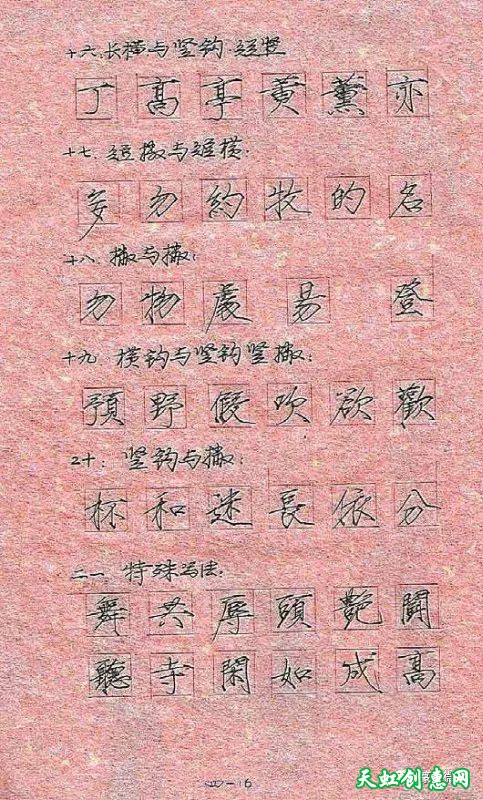 十六.长横与竖钩.短竖
丁高亭黄薰亦
十七.短撇与短横:
妄勿約牧的名
十八.撇与撇:
勿物處易登
十九.横钩与竖钩竖撇:
預野假吹欲歡
二十:竖钩与撇:
杯和迷長依分
二一.特殊写法:
舞共厚頭艷開
聽寺閑如成高
四-16
天虹创意网